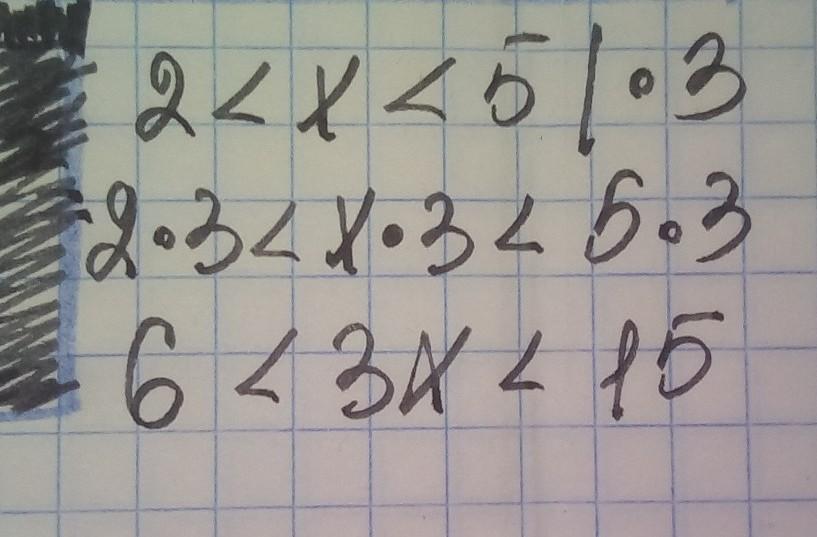 2 < x < 5 | • 3
2 • 3 < x • 3 < 5 • 3
6 < 3x < 15